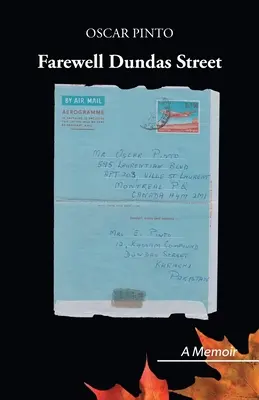 OSCAR PINTO
Farewell Dundas Street
BY AIR MAIL
AEROGRAMME
MR OSCAR PINTO
LAURENTIAN BLVD
APT 203 VILLE ST LAURENT
MONTREAL P.Q
CANADA H4M 2M1
MRS E. PINTO
12, COMPOUND
DUNDAS STREET
KARACHI
PAKISTAN
A Memoir